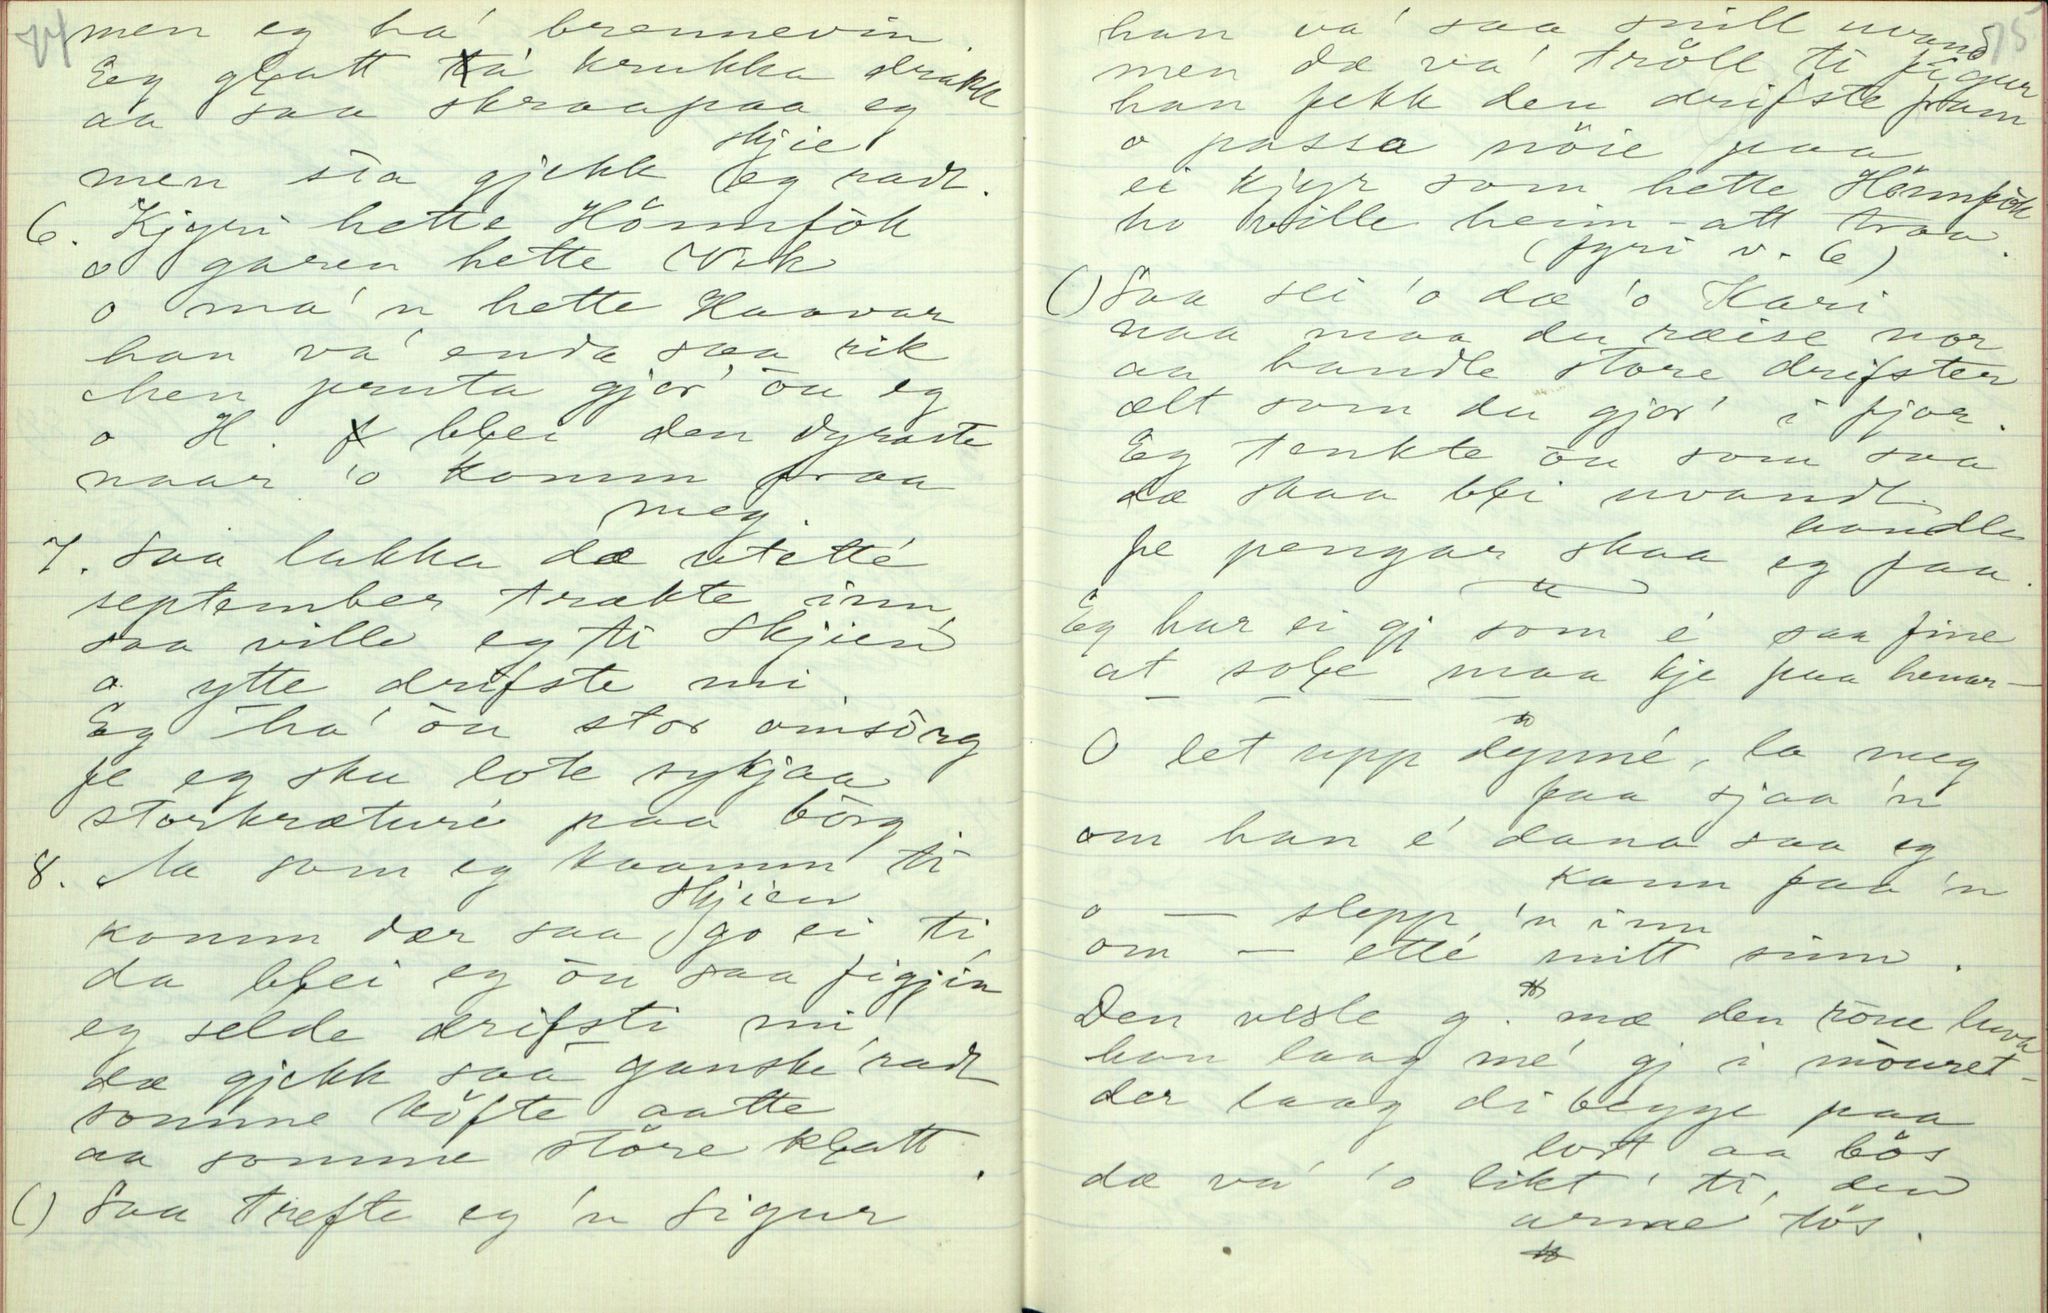 74
men eg ha' brennevin.
Eg glatt tá krukka drakk
aa saa skraapaa eg
skjie
men sia gjekk eg radt.
6. Kjyri hette Hömnfök
o garen hette Vik
o ma'n hette Haavar
han va' enda saa rik
Men pruta gjor' òu eg
o H. blei den dyraste
naar 'o komm fraa
meg.
7. Saa lakka dæ utetté
september trækte inn,
saa ville eg ti Skjien
o ytte drifste mi.
Eg ha' òu stor omsòrg
fe eg sku lote sykjaa
storkræturé paa bòrg
8. Na som eg kaamm ti
Skjien
komm dær saa go ei ti
da blei eg òu saa figjin
eg selde drifsti mi
dæ gjekk saa ganske radt
somme köfte aatte
aa somme större klatt.
() Saa trefte eg 'n Sigur
75
han va' saa snill uvand
men dæ va' tröll ti figur
han fekk den drifste fram
o passa nöie paa
ei kjyr som hette Hömnfök
ho ville heim-att traa.
(fyri v. 6)
() Saa sei 'o dæ 'o Kari
naa maa du ræise nor
aa handle store drifster
ælt som du gjor' i fjor.
Eg tenkte òu som saa
dæ skaa blei uvandt
handle
fe pengar skaa eg faa.
Eg har ei gj som é saa fine
at sole maa kje paa henar—
O let upp dynné, la meg
faa sjaa 'n
om han é dana saa eg
kann faa 'n
o — slepp 'n inn
om — etté mitt sinn.
Den vesle g. mæ den röue huva
han laag mé gj i mòuret—
der laag di begge paa
lort aa bös
dæ va' 'o likt ti, den
arme tös.